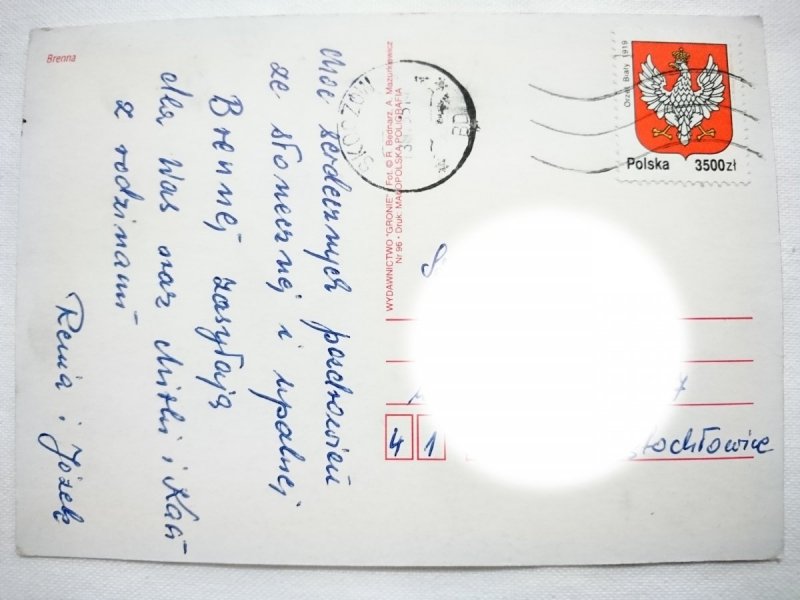 Brenna
Moc serdecznych pozdrowień
ze słonecznej i upalnej
Brennej zasyłają
dla Was oraz i Kasi
z rodzinami
Renia i Józek
WYDAWNICTWO "GRONIE" Fot. © R. Bednarz, A. Mazurkiewicz
Nr 96 • Druk: MAŁOPOLSKA POLIGRAFIA
SKOCZÓW
Orzeł Biały 1919
Polska 3500zł
7
41